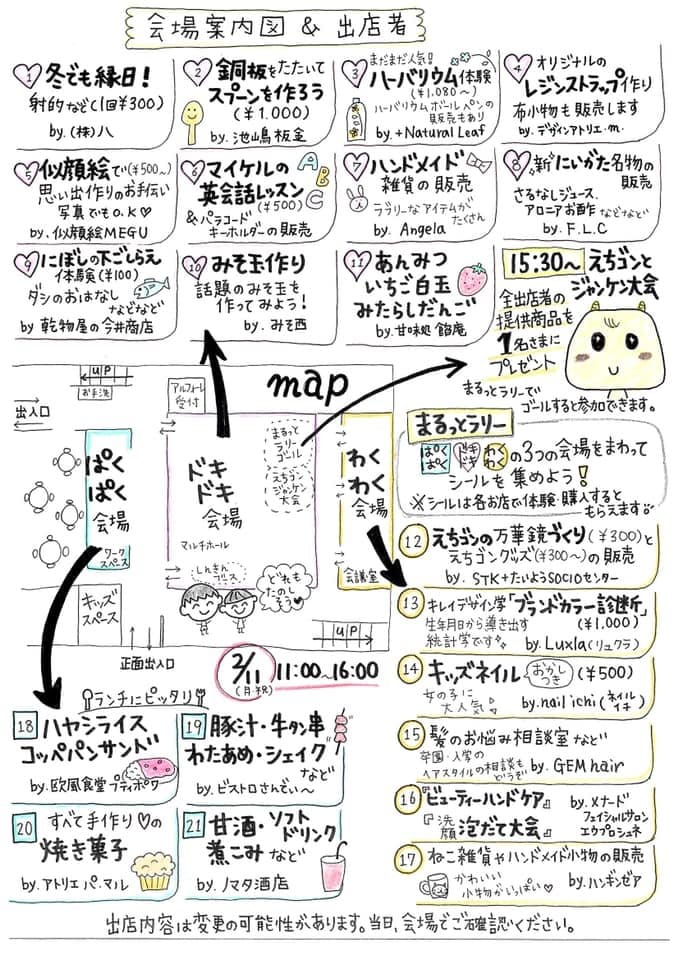 会場案内図 & 出店者
1 冬でも縁日!
射的など(1回¥300)
by.(株)八
2 銅板をたたいて
スプーンを作ろう
(¥1,000)
by. 池鳥板金
3 まだまだ人気!
ハーバリウム体験
(¥1,080〜)
ハーバリウムボールペンの
販売もあり
by. +Natural Leaf
4 オリジナルの
レジンストラップ作り
布小物も販売します
by. デザインアトリエ・m.
5 似顔絵で(¥500〜)
思い出作りのお手伝い
写真でもO.K♡
by. 似顔絵MEGU
6 マイケルの
英会話レッスン
(¥500)
&パラコード
キーホルダーの販売
A B C
7 ハンドメイド
雑貨の販売
ラブリーなアイテムが
たくさん
by. Angela
8 新にいがた名物の
販売
さるなしジュース、
アロニアお酢などなど
by. F.L.C
9 にぼしの下ごしらえ
体験(¥100)
ダシのおはなし
などなど
by 乾物屋の今井商店
10 みそ玉作り
話題のみそ玉を
作ってみよう!
by. みそ西
11 あんみつ
いちご白玉
みたらしだんご
by. 甘味処 餡庵
15:30〜 えちゴンと
ジャンケン大会
全出店者の
提供商品を
1名さまに
プレゼント
まるっとラリーで
ゴールすると参加できます。
map
UP
お手洗
出入口
アルフォーレ
受付
ぱく
ぱく
会場
ワーク
スペース
ドキ
ドキ
会場
マルチホール
まるっと
ラリー
ゴール
えちゴン
ジャンケン
大会
わく
わく
会場
会議室
しんきん
ブース
どれも
たのし
そう♥
キッズ
スペース
正面出入口
UP
2/11
(月・祝)
11:00〜16:00
まるっとラリー
ぱくぱく ドキドキ わくわく の3つの会場をまわって
シールを集めよう!
※シールは各お店で体験・購入すると
もらえます
12 えちゴンの万華鏡づくり(¥300)と
えちゴングッズ(¥300〜)の販売
by. STK+たいようSOCIOセンター
13 キレイデザイン学「ブランドカラー診断」
生年月日から導き出す
統計学です
(¥1,000)
by. Luxla(リュクラ)
14 キッズネイル おかしつき (¥500)
女の子に
大人気!
by. nail ichi (ネイル
イチ)
15 髪のお悩み相談室 など
卒園・入学の
ヘアスタイルの相談も
どうぞ
by. GEM hair
16 『ビューティーハンドケア』
『洗顔泡だて大会』
by. メナード
フェイシャルサロン
エウプロシュネ
17 ねこ雑貨やハンドメイド小物の販売
かわいい
小物がいっぱい♡
by. ハンギンゼア
ランチにピッタリ
18 ハヤシライス
コッペパンサンド
by. 欧風食堂・プティポワ
19 豚汁・牛タン串
わたあめ・シェイク
など
by. ビストロさんでぃ〜
20 すべて手作り♡の
焼き菓子
by. アトリエ パ・マル
21 甘酒・ソフト
ドリンク
煮こみ など
by. ノマタ酒店
出店内容は変更の可能性があります。当日、会場でご確認ください。